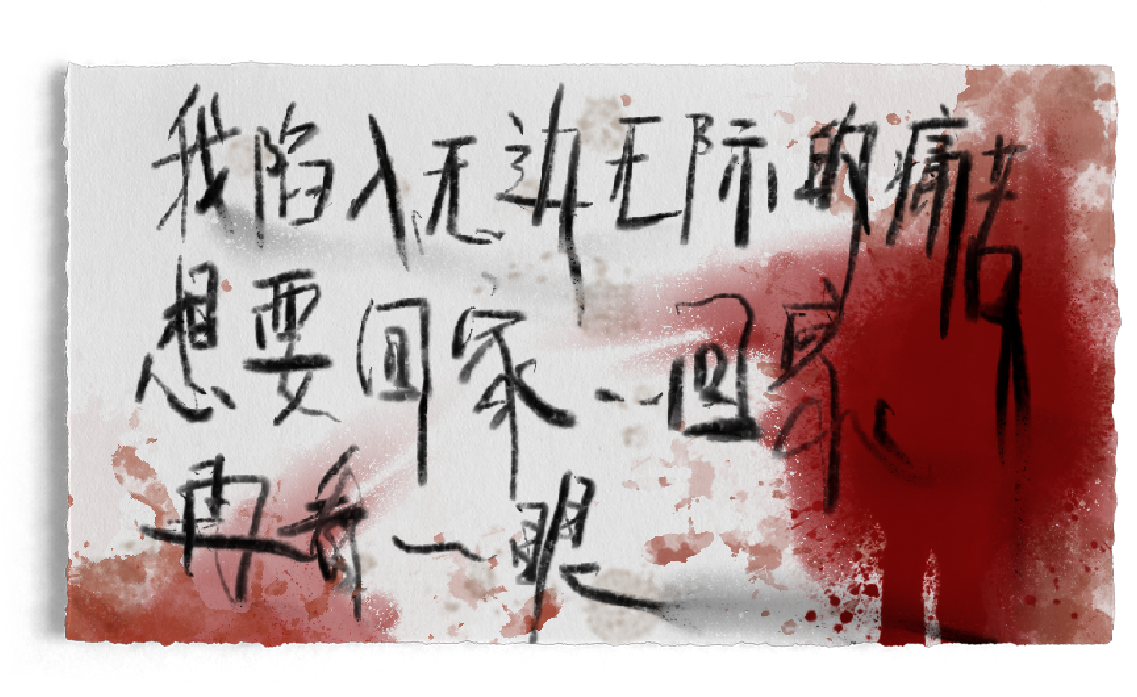 我陷入无边无际的痛苦
想要回家…回家
再看一眼